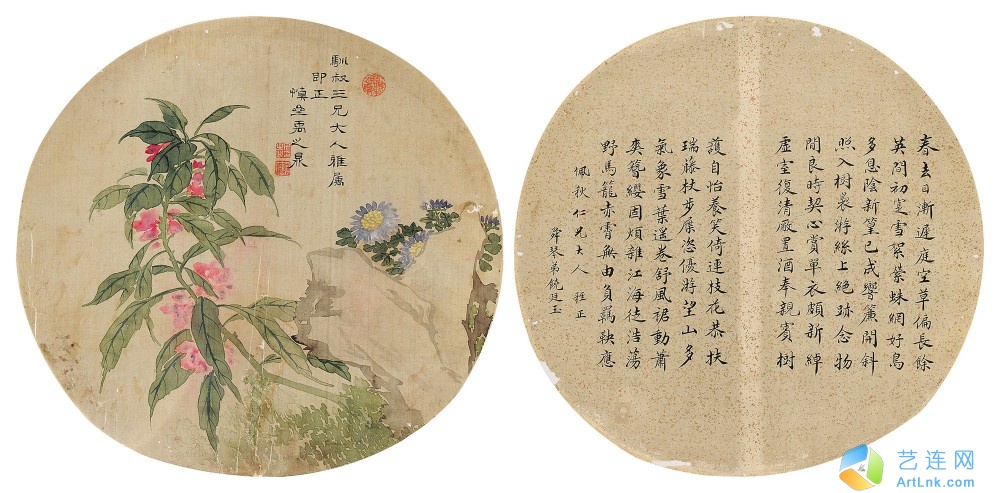 馴叔三兄大人雅屬
即正
慎禹之
春去日漸遲庭空草偏長餘
英間初實雪絮縈蛛網好鳥
多息陰新篁已成響簾開斜
照入樹裊游絲上絕跡念物
閒良時契心賞單衣頗新綽
虛室復清敞置酒奉親賓樹
萲自怡養笑倚連枝花恭扶
瑞藤杖步屧恣優游望山多
氣象雲葉遥卷舒風裾動蕭
爽簪纓固煩雜江海徒浩蕩
野馬籠赤霄無由負羈鞅應
佩秋仁兄大人 雅正
舜琴弟饒廷玉
艺连网
ArtLnk.com